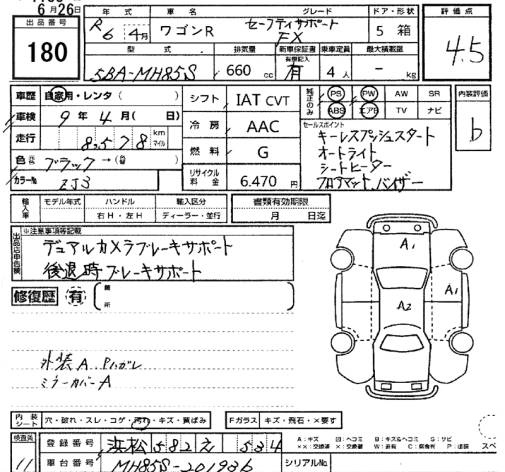 6月26日
出品番号
180
年式
R6 4月
車名
ワゴンR
グレード
セーフティサポート
FX
ドア・形状
5 箱
評価点
4.5
型式
5BA-MH85S
排気量
660 cc
新車保証書
有
乗車定員
4人
最大積載量
- kg
車歴 自家用・レンタ( )
車検 9年4月( 日)
走行 82578 km マイル
色 ブラック→( )
カラーNo. ZJ3
シフト IAT CVT
冷房 AAC
燃料 G
リサイクル料金 6.470 円
純正のみ
PS PW AW SR
ABS エアB TV ナビ
セールスポイント
キーレスプッシュスタート
オートライト
シートヒーター
フロアマット、バイザー
内装評価
b
輸入車
モデル年式
ハンドル
右H・左H
輸入区分
ディーラー・並行
書類有効期限
月 日迄
出品店申告欄
※注意事項等記載
デュアルカメラブレーキサポート
後退時ブレーキサポート
修復歴 有
箇所
外装A、Pハガレ
ミラーカバーA
A1
A2
A1
内装シート
穴・破れ・スレ・コゲ・汚れ・キズ・黄ばみ
Fガラス キズ・飛石・×要す
検査員
11
登録番号
浜松 582 え 534
車台番号
MH85S-201936
シリアルNo.
A:キズ U:ヘコミ B:キズ&ヘコミ S:サビ